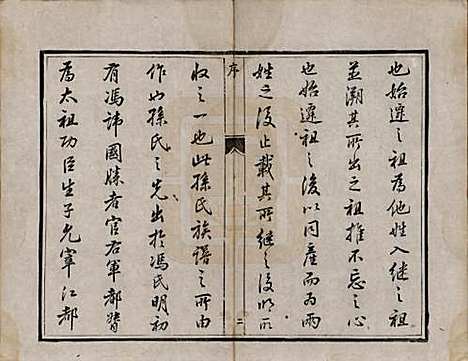 也始遷之祖為他姓入繼之祖
並溯其所出之祖推不忘之心
也始遷祖之後以同產而為兩
姓之後止載其所繼之後明所
序
二
收之一也此孫氏族譜之所由
作也孫氏之先出於馮氏明初
有馮諱國勝者官右軍都督
為太祖功臣生子允寧江都